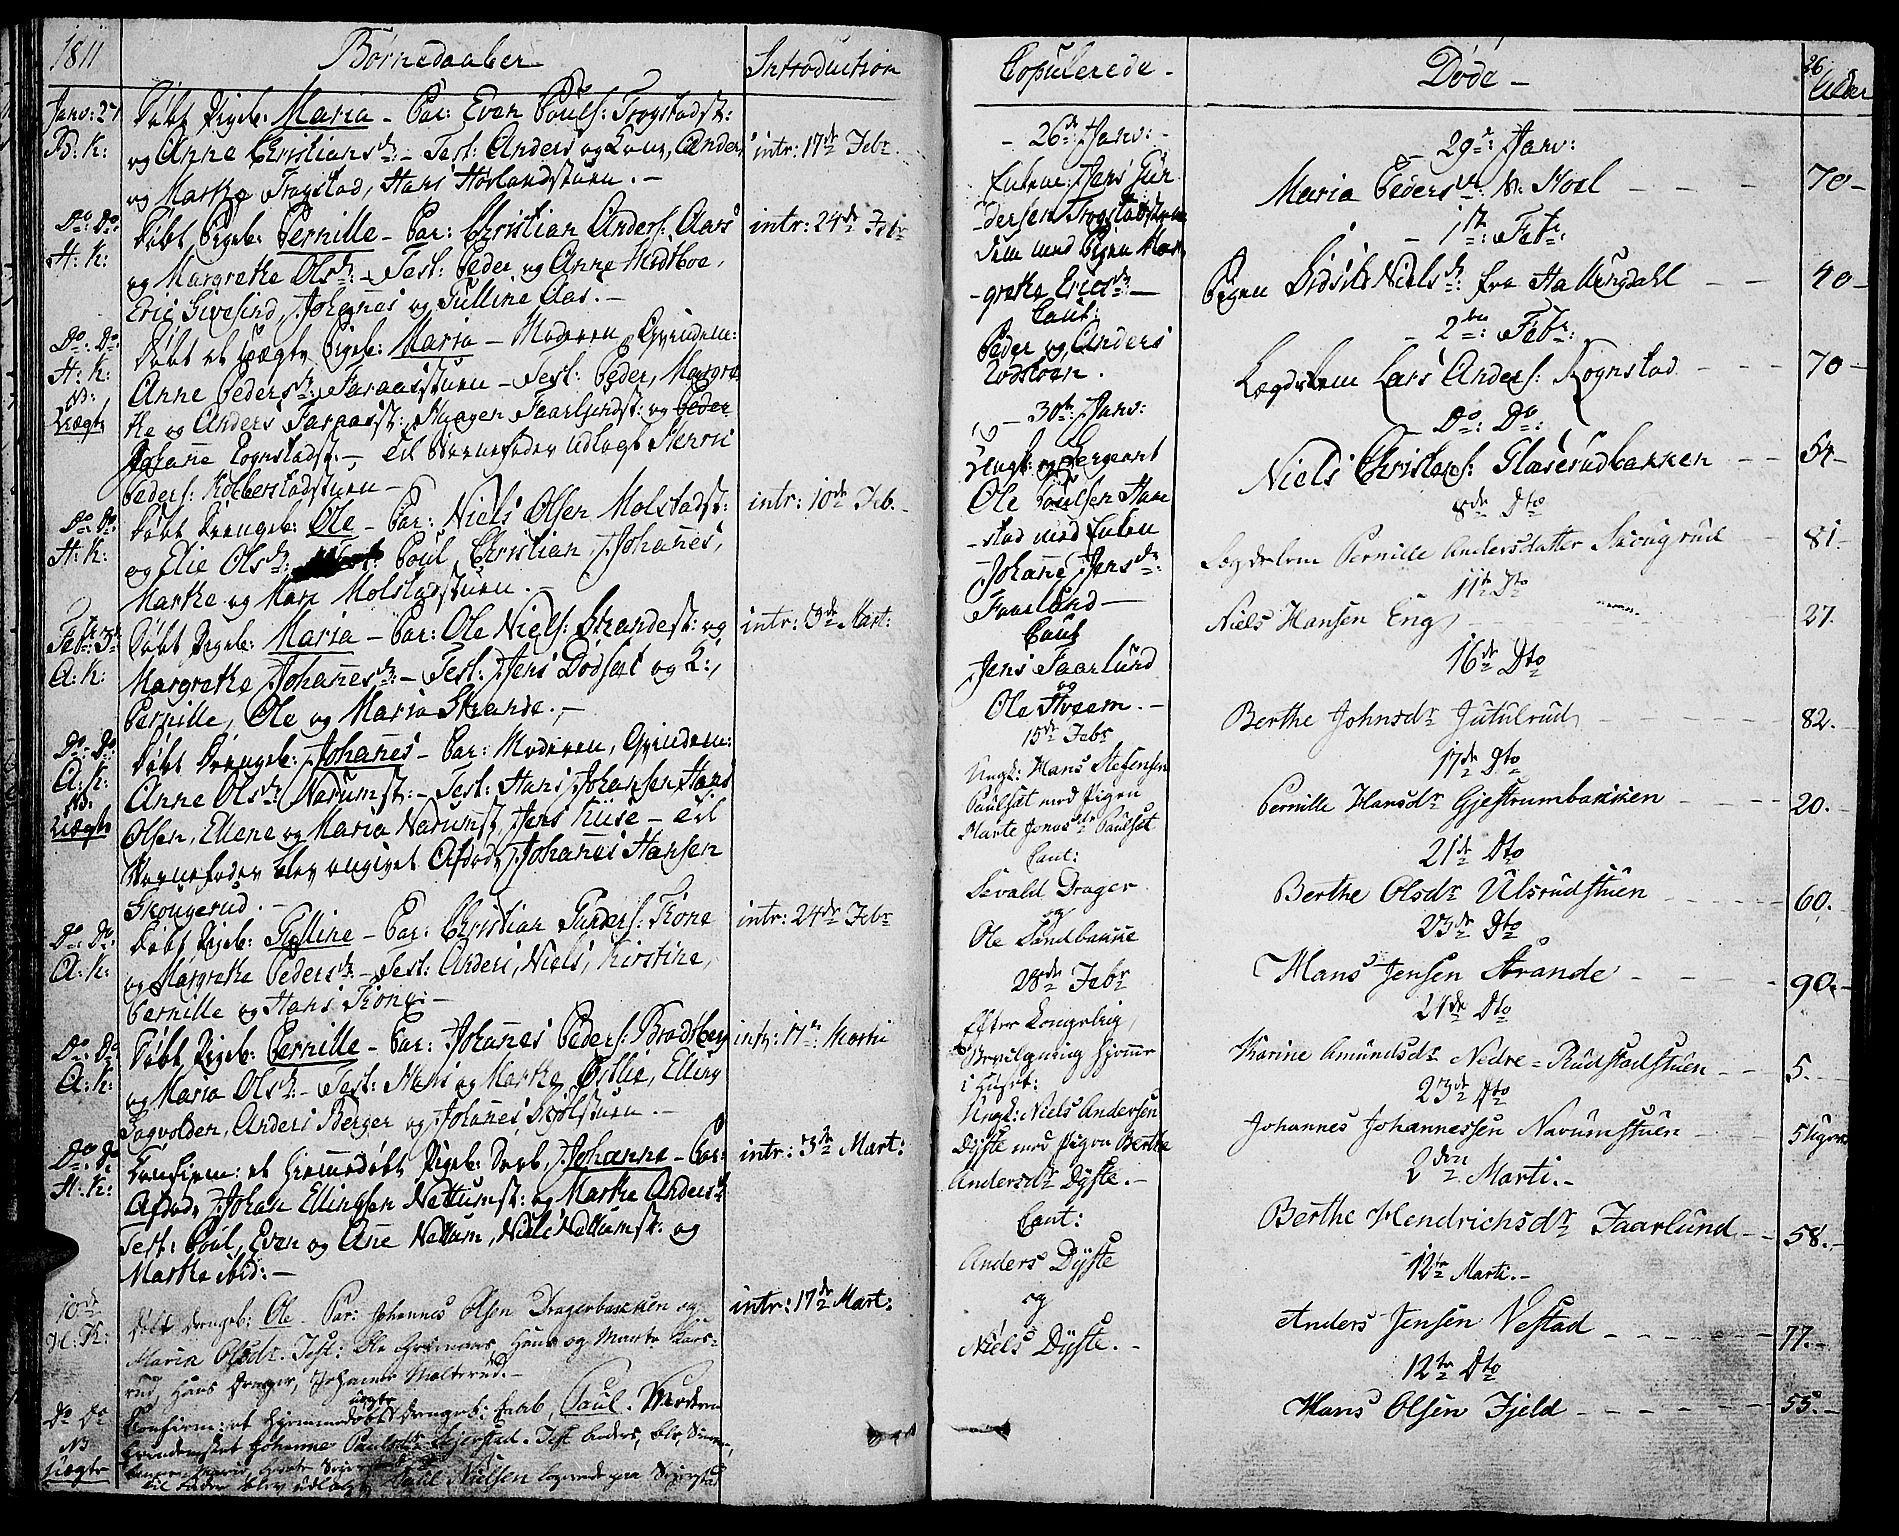 1811
Børnedaaber
Introduction
Janv: 27
B: K:
Døbt Pigeb: Maria – Par: Even Pouls: Trogstadst:
og Anne Christiansdr: – Test: Anders og Kone, Anders
og Marthe Trogstad, Hans Horlandstuen. –
intr: 17de Febr.
Do: Do:
H: K:
Døbt Pigeb: Pernille – Par: Christian Anders: Aas
og Margrethe Olsdr: – Test: Peder og Anne Midtboe,
Eric Sivesind, Johanes og Gulline Aas. –
intr: 24de Febr
Do: Do:
H: K:
NB:
Uægte
Døbt et Uægte Pigeb: Maria – Moderen Qvindem:
Anne Pedersdr: Faraasstuen – Test: Peder, Margre
the og Anders Faraasst:, Haagen Faarlundst: og Peder
Johane Rognstadst: –, til Barnefader udlagt Henric
Peders: Kolberstadstuen –
Do: Do:
H: K:
Døbt Drengeb: Ole – Par: Niels Olsen Molstadst:
og Elie Olsdr: Poul, Christian, Johanes,
Marthe og Mari Molstadstuen. –
intr: 10de Feb. –
Febr: 3de
A: K:
Døbt Pigeb: Maria – Par: Ole Niels: Strandest: og
Margrethe Johanesdr: – Test: Jens Dodset og K:,
Pernille, Ole og Maria Strande. –
intr: 3de Mart:
Do: Do:
A: K:
NB:
Uægte
Døbt Drengeb: Johanes – Par: Moderen, Qvindem:
Anne Olsdr: Narumst: – Test: Hans Johansen, Hans
Olsen, Ellene og Maria Narumst, Jens Kiise – til
Barnefader blev angivet Afdøde Johanes Hansen
Skougerud. –
Do: Do:
A: K:
Døbt Pigeb: Gulline – Par: Christian Gunders: Kone
og Margrethe Pedersdr: – Test: Anders, Niels, Kirstine,
Pernille og Hans Kone: –
intr: 24de Febr
Do: Do:
A: K:
Døbt Pigeb: Pernille – Par: Johanes Peders: Bradtberg
og Maria Olsdr: – Test: Hans og Marthe Østlie, Elling
Fagvolden, Anders Berger og Johanes Skolstuen. –
intr: 17de Martii
Do: Do
H: K:
Confirm: et hiemmedøbt Pigeb: Daab, Johanne – Par:
Afdøde Johan Ellingsen Nettumst: og Marthe Andersdr
Test: Poul, Even og Ane Nettum, Niels Nettumst: og
Marthe ibid: –
intr: 3de Mart:
10de
H: K:
Døbt Drengeb: Ole – Par: Johannes Olsen Dragerbakken og
Maria Olsdr. Test: Ole Grimaas, Hans og Marte Kars-
rud, Hans Drager, Johannes Molterud. –
intr: 17de Mart:
Do Do
NB
Uægte
Confirm: et hjemmedøbt uægte Drengeb: Daab, Paul. Moderen
Qvindemsket Johanne Paulsdr Seierstad. Test Anders,
til Fader blev udlagt Paul Nielsen logerende paa Seierstad
Copulerede –
– 26de Janv: –
Enkem: Jens Gun
dersen Trogstadstuen
dem med Pigen Mar
grethe Ericsdr: –
Caut:
Peder og Anders
Lodshoen.
– 30te Janv:
Ungk: og Sergeant
Ole Poulsen Ham
stad med Enken
Johane Jensdr:
Faarlund –
Caut
Jens Faarlund
og
Ole Sveem. –
15de Febr
Ungk: Hans Stefensen
Paulset med Pigen
Marte Jonasdr Paulset
Caut:
Sevald Drager
og
Ole Sandbakke
28de Febr
Efter Kongelig
Bevilgning hjemme
i Huset:
Ungk: Niels Andersen
Dyste med Pigen Berthe
Andersdr Dyste. –
Caut:
Anders Dyste
og
Niels Dyste. –
Døde –
26
Alder
– 29de Janv:
Maria Pedersdr: N: Hoel – – – 70 –
– 1ste: Febr:
Pigen Sidsele Nielsdr: fra Hallingdahl – – 40 –
– 2den: Febr:
Lægdslem Lars Anders: Rognstad – – – 70 –
Do: Do:
Niels Christophs: Glaserudbakken – – 54 –
8de Dto
Lægdslem Pernille Andersdatter Skougrud – 81. –
11te Dto
Niels Hansen Eng – 27.
16de Dto
Berthe Johnsdr Jutulrud – – – 82. –
17de Dto
Pernille Hansdr Gjestrumbakken – – – 20. –
21de Dto
Berthe Olsdr Ulsrudstuen – – – 60. –
23de Dto
Hans Jensen Strande – – – 90. –
24de Dto
Karine Amundsdr Nedre = Rudstadstuen – – 5. –
23de Dto
Johannes Johannessen Narumstuen – – 5 Uger
2den Marti. –
Berthe Hendrichsdr Faarlund – – 58. –
12te Marti. –
Anders Jensen Nestad – – – 77. –
12te Dto
Hans Olsen Fjeld – – – 55. –